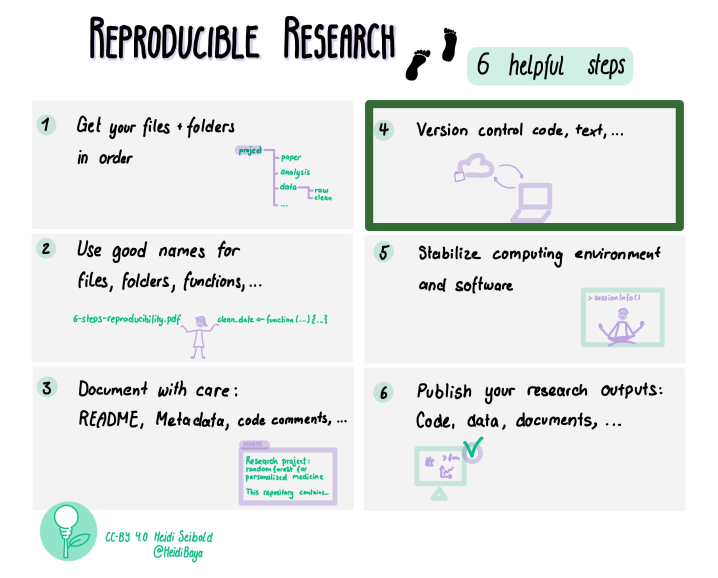 REPRODUCIBLE RESEARCH
6 helpful steps
1 Get your files + folders
in order
project
paper
analysis
data
raw
clean
...
2 Use good names for
files, folders, functions,...
6-steps-reproducibility.pdf
clean_date <- function(...) {...}
3 Document with care:
README, Metadata, code comments, ...
README
Research project:
random forest for
personalized medicine
This repository contains...
4 Version control code, text,...
5 Stabilize computing environment
and software
> sessionInfo()
6 Publish your research outputs:
Code, data, documents, ...
CC-BY 4.0 Heidi Seibold
@HeidiBaya